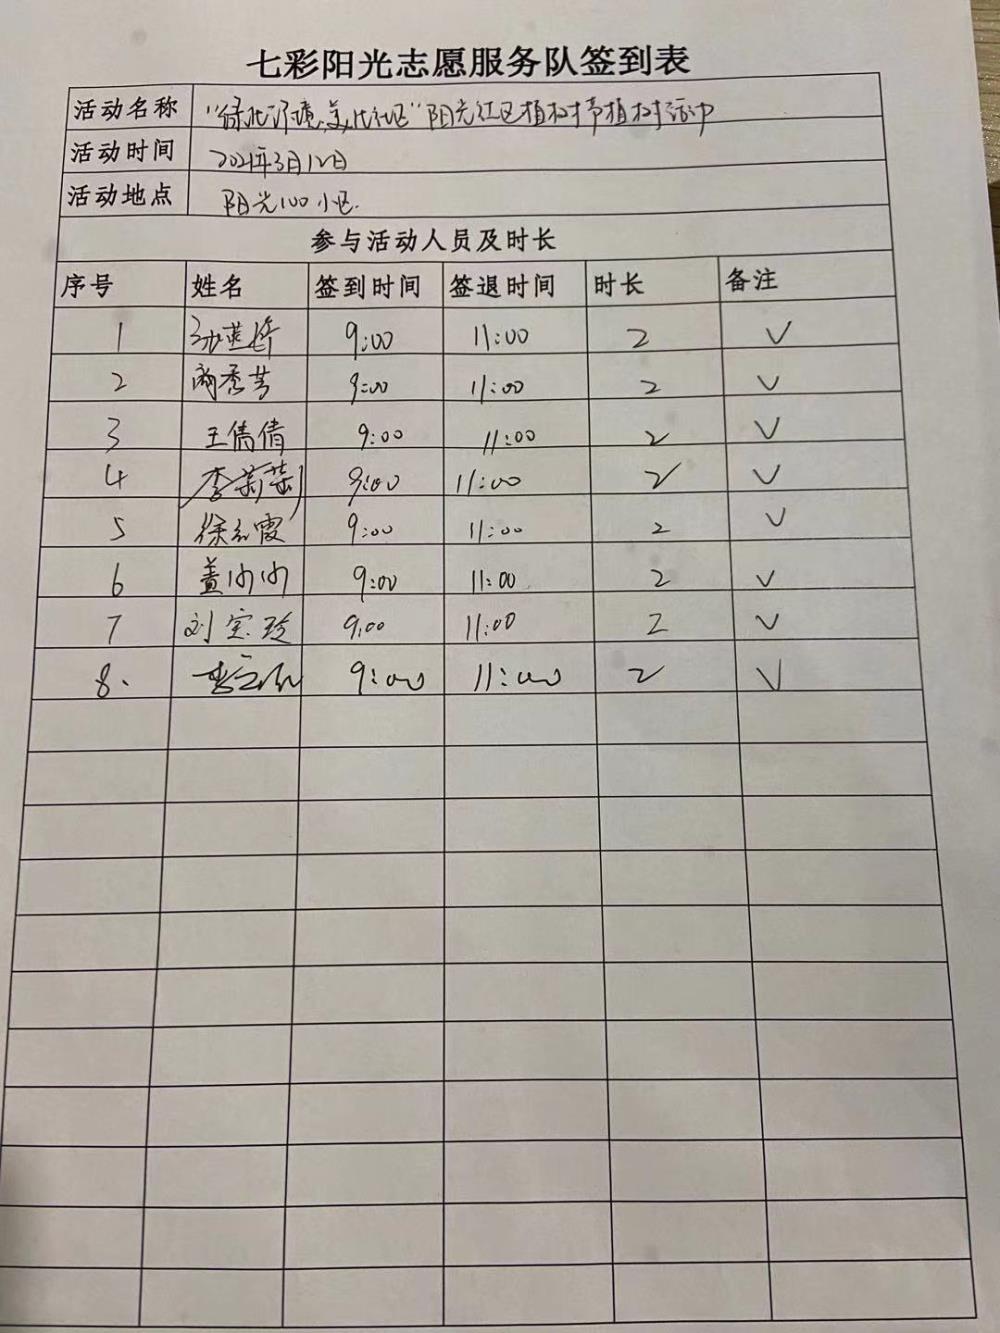 七彩阳光志愿服务队签到表
活动名称 "绿化环境,美化社区"阳光社区植树节植树活动
活动时间 2021年3月12日
活动地点 阳光100小区.
参与活动人员及时长
序号 姓名 签到时间 签退时间 时长 备注
1 9:00 11:00 2 √
2 秀芳 9:00 11:00 2 √
3 王倩倩 9:00 11:00 2 √
4 李 9:00 11:00 2 √
5 徐红霞 9:00 11:00 2 √
6 盖 9:00 11:00 2 √
7 刘宝玲 9:00 11:00 2 √
8. 李 9:00 11:00 2 √